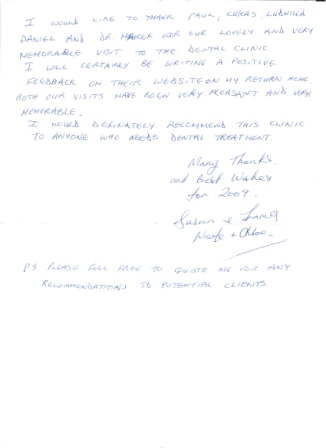 I WOULD LIKE TO THANK PAUL, LUKAS, LUDMILA
DANIEL AND DR. MAREK FOR OUR LOVELY AND VERY
MEMORABLE VISIT TO THE DENTAL CLINIC
I WILL CERTAINLY BE WRITING A POSITIVE
FEEDBACK ON THEIR WEBSITE ON MY RETURN HOME.
BOTH OUR VISITS HAVE BEEN VERY PLEASANT AND VERY
MEMORABLE.
I WOULD DEFINATELY RECOMMEND THIS CLINIC
TO ANYONE WHO NEEDS DENTAL TREATMENT.
Many Thanks.
and Best Wishes
for 2009.
Susan &
Nicole + Chloe
PS PLEASE FEEL FREE TO QUOTE ME FOR ANY
RECOMMENDATIONS TO POTENTIAL CLIENTS.